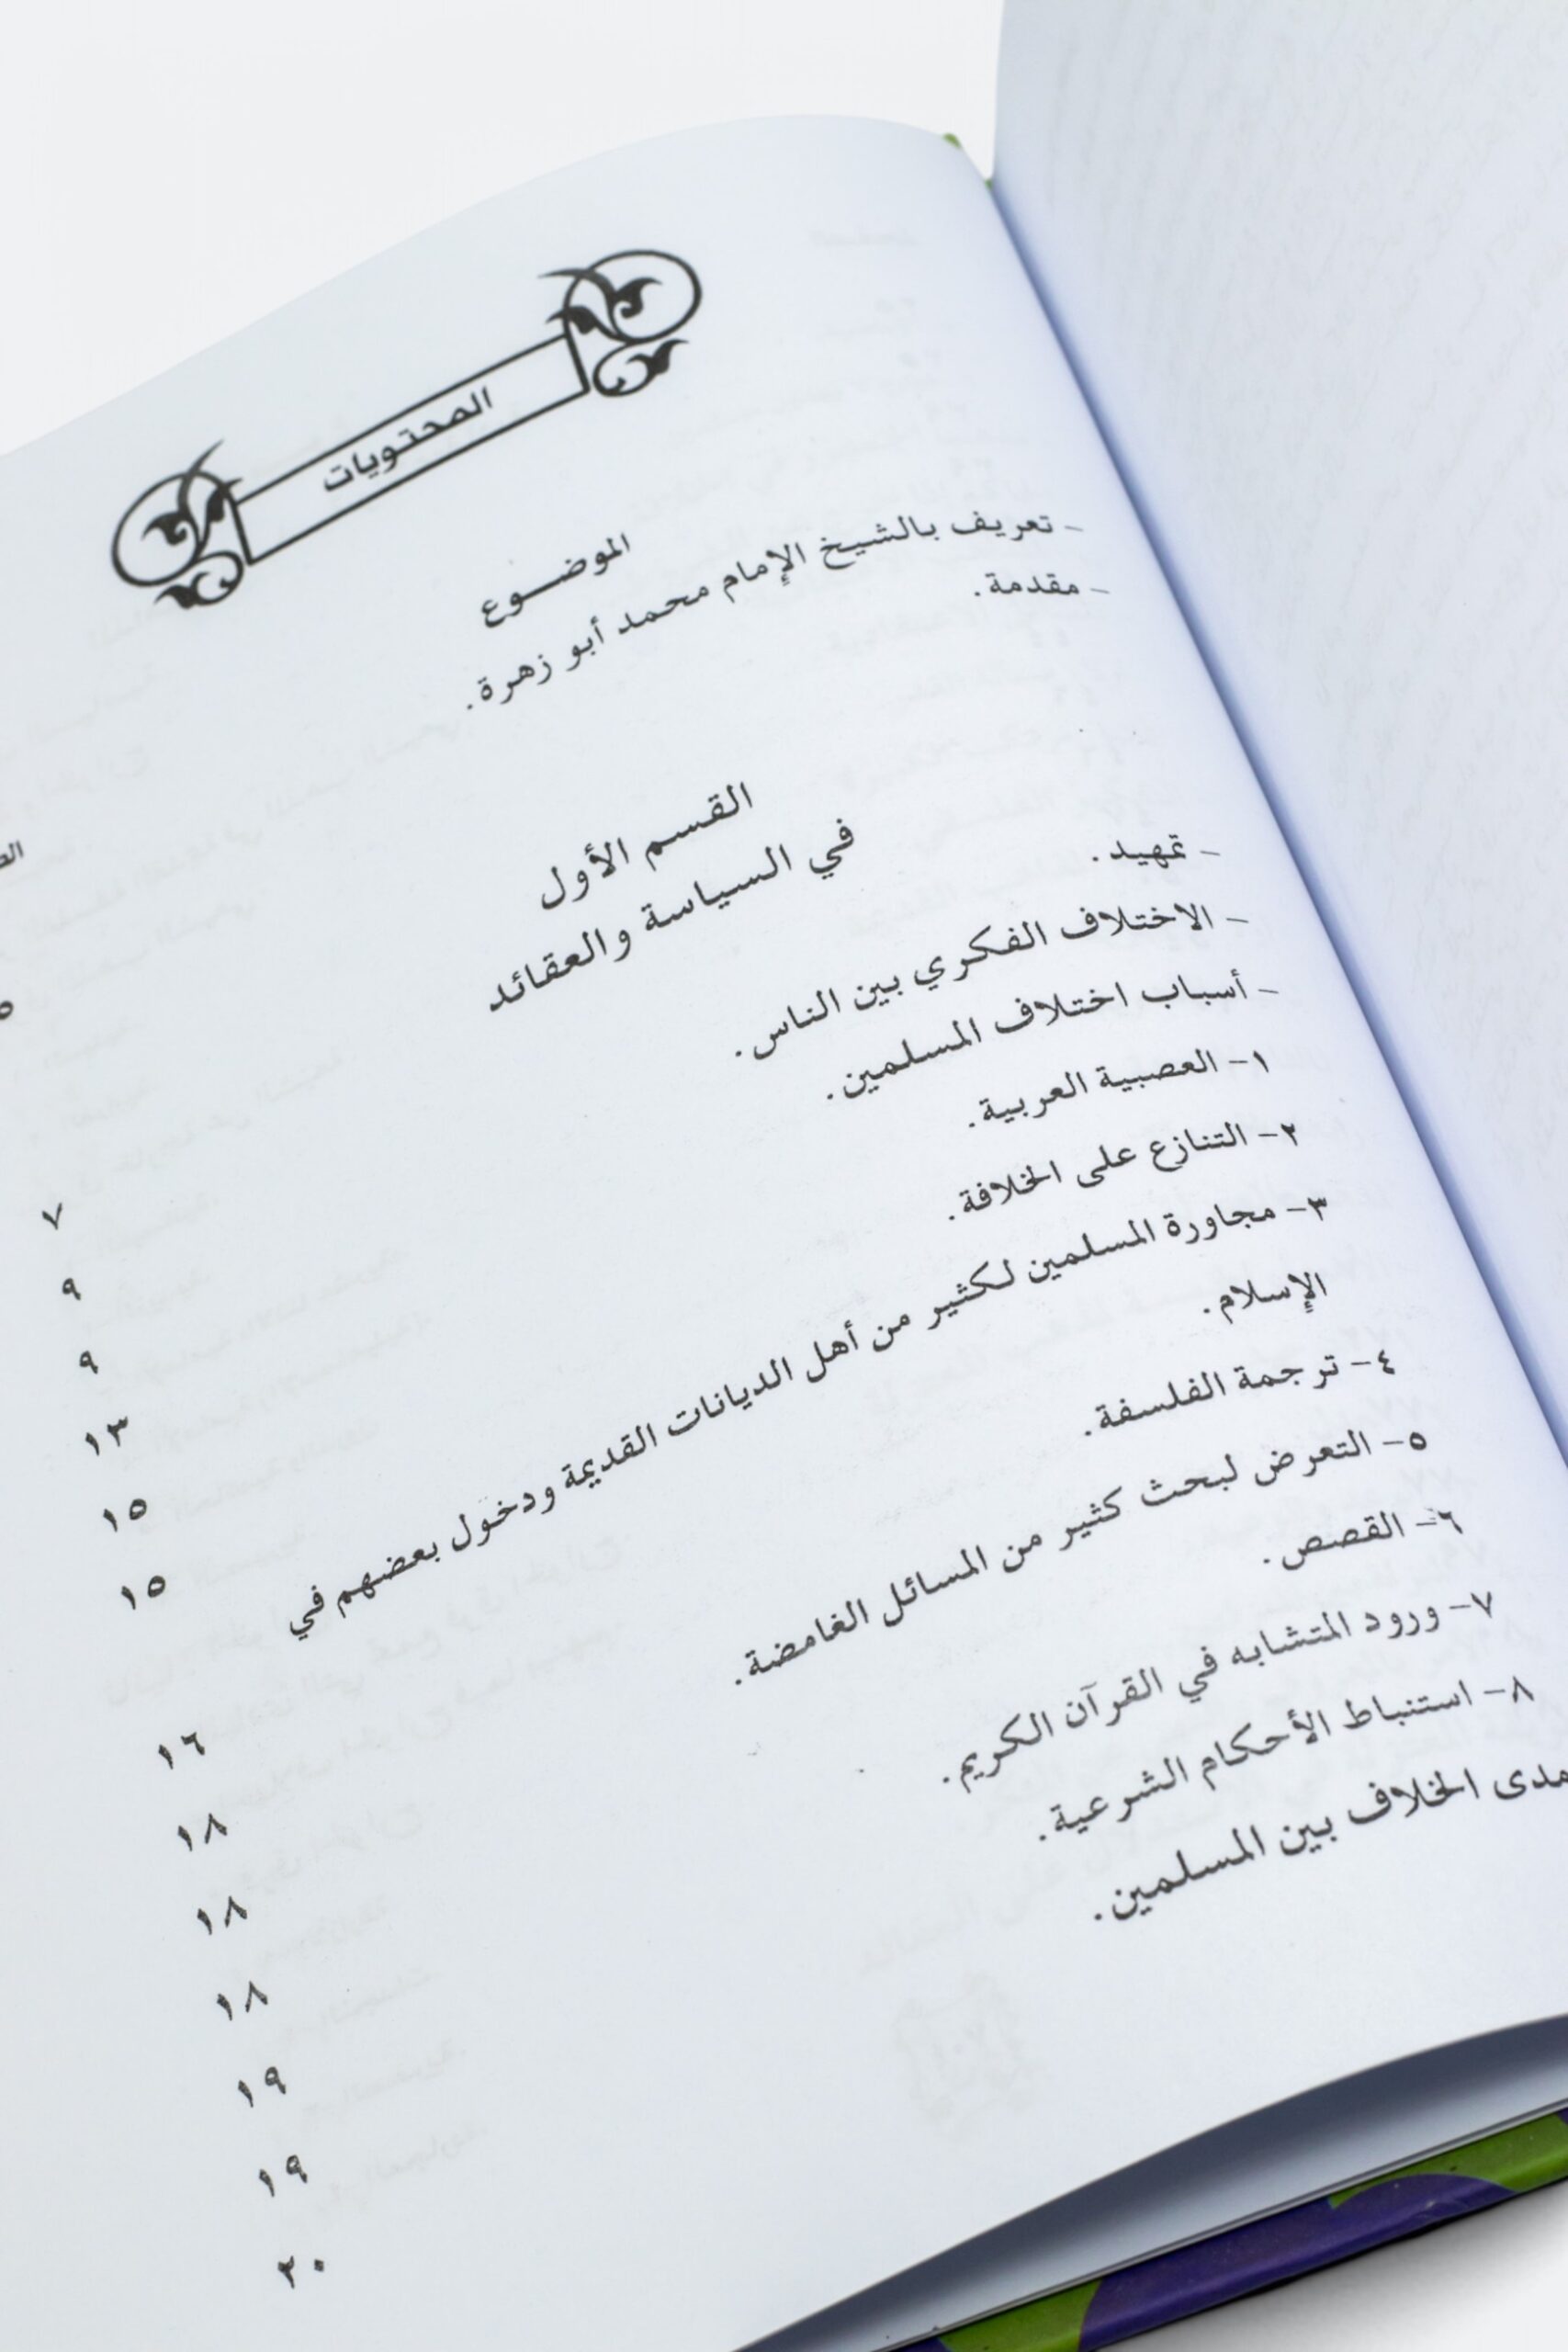 المحتويات
الموضوع
- تعريف بالشيخ الإمام محمد أبو زهرة.
- مقدمة.
٥
القسم الأول
في السياسة والعقائد
- تمهيد.
- الاختلاف الفكري بين الناس.
- أسباب اختلاف المسلمين.
١- العصبية العربية.
٢- التنازع على الخلافة.
٣- مجاورة المسلمين لكثير من أهل الديانات القديمة ودخول بعضهم في
الإسلام.
٤- ترجمة الفلسفة.
٥- التعرض لبحث كثير من المسائل الغامضة.
٦- القصص.
٧- ورود المتشابه في القرآن الكريم.
٨- استنباط الأحكام الشرعية.
مدى الخلاف بين المسلمين.
٧
٩
٩
١٣
١٥
١٥
١٦
١٨
١٨
١٨
١٩
١٩
٢٠